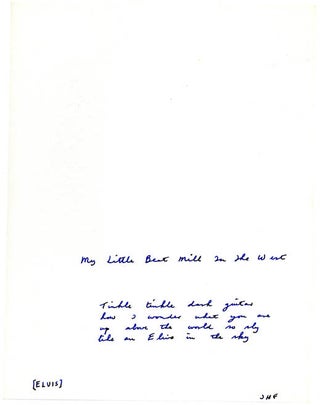 My Little Best Mill In The West
Tinkle tinkle dark guitar
how I wonder what you are
up above the world so sly
like an Elvis in the sky
[ELVIS]
JHF